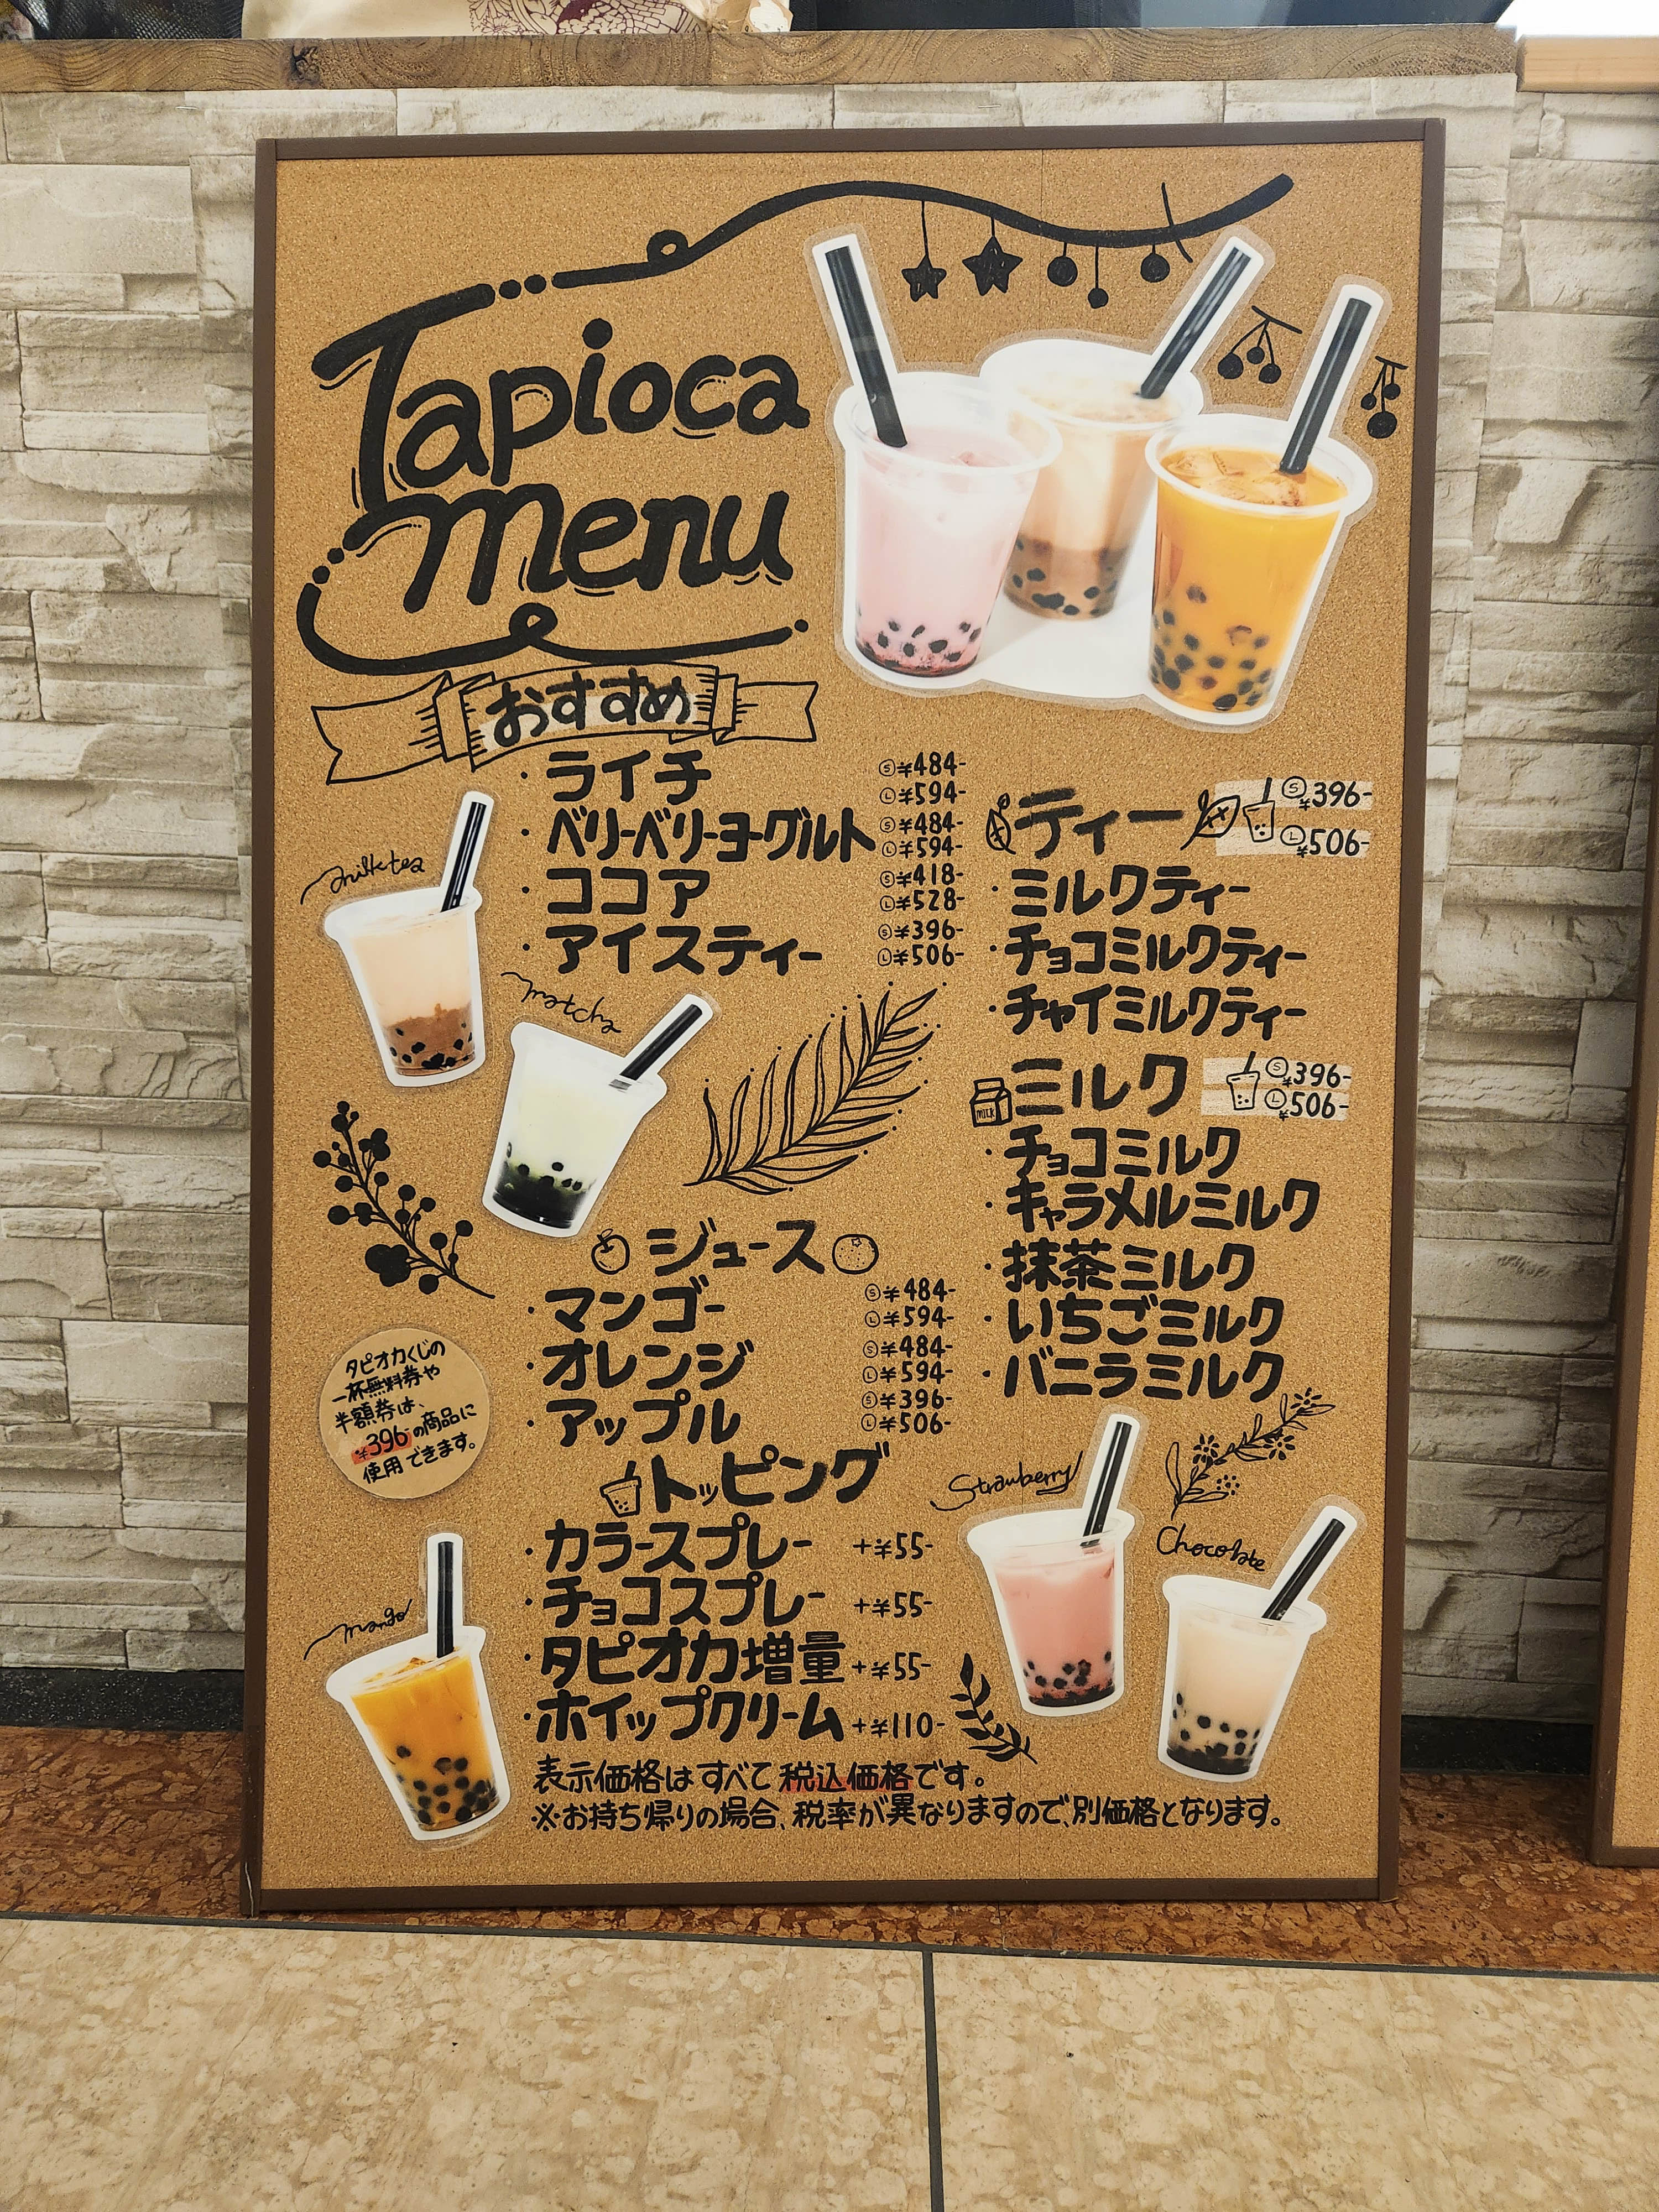 Tapioca
Menu
おすすめ
・ライチ Ⓢ¥484-
Ⓛ¥594-
・ベリーベリーヨーグルト Ⓢ¥484-
Ⓛ¥594-
・ココア Ⓢ¥418-
Ⓛ¥528-
・アイスティー Ⓢ¥396-
Ⓛ¥506-
milk tea
matcha
ジュース
・マンゴー Ⓢ¥484-
Ⓛ¥594-
・オレンジ Ⓢ¥484-
Ⓛ¥594-
・アップル Ⓢ¥396-
Ⓛ¥506-
タピオカくじの
一杯無料券や
半額券は、
¥396-の商品に
使用できます。
トッピング
・カラースプレー +¥55-
・チョコスプレー +¥55-
・タピオカ増量 +¥55-
・ホイップクリーム +¥110-
mango
ティー Ⓢ¥396-
Ⓛ¥506-
・ミルクティー
・チョコミルクティー
・チャイミルクティー
MILK
ミルク Ⓢ¥396-
Ⓛ¥506-
・チョコミルク
・キャラメルミルク
・抹茶ミルク
・いちごミルク
・バニラミルク
Strawberry
Chocolate
表示価格はすべて税込価格です。
※お持ち帰りの場合、税率が異なりますので、別価格となります。